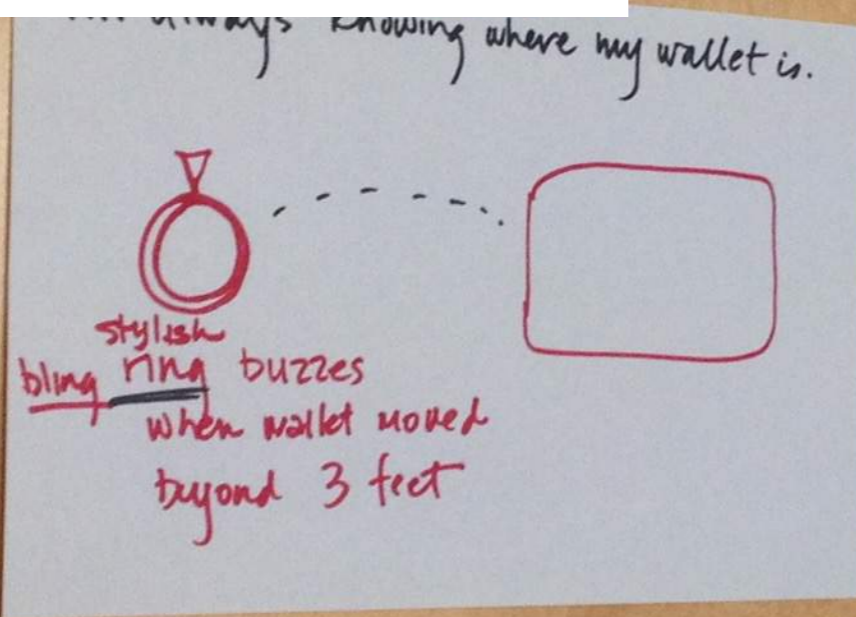 always knowing where my wallet is.
stylish
bling ring buzzes
when wallet moved
beyond 3 feet